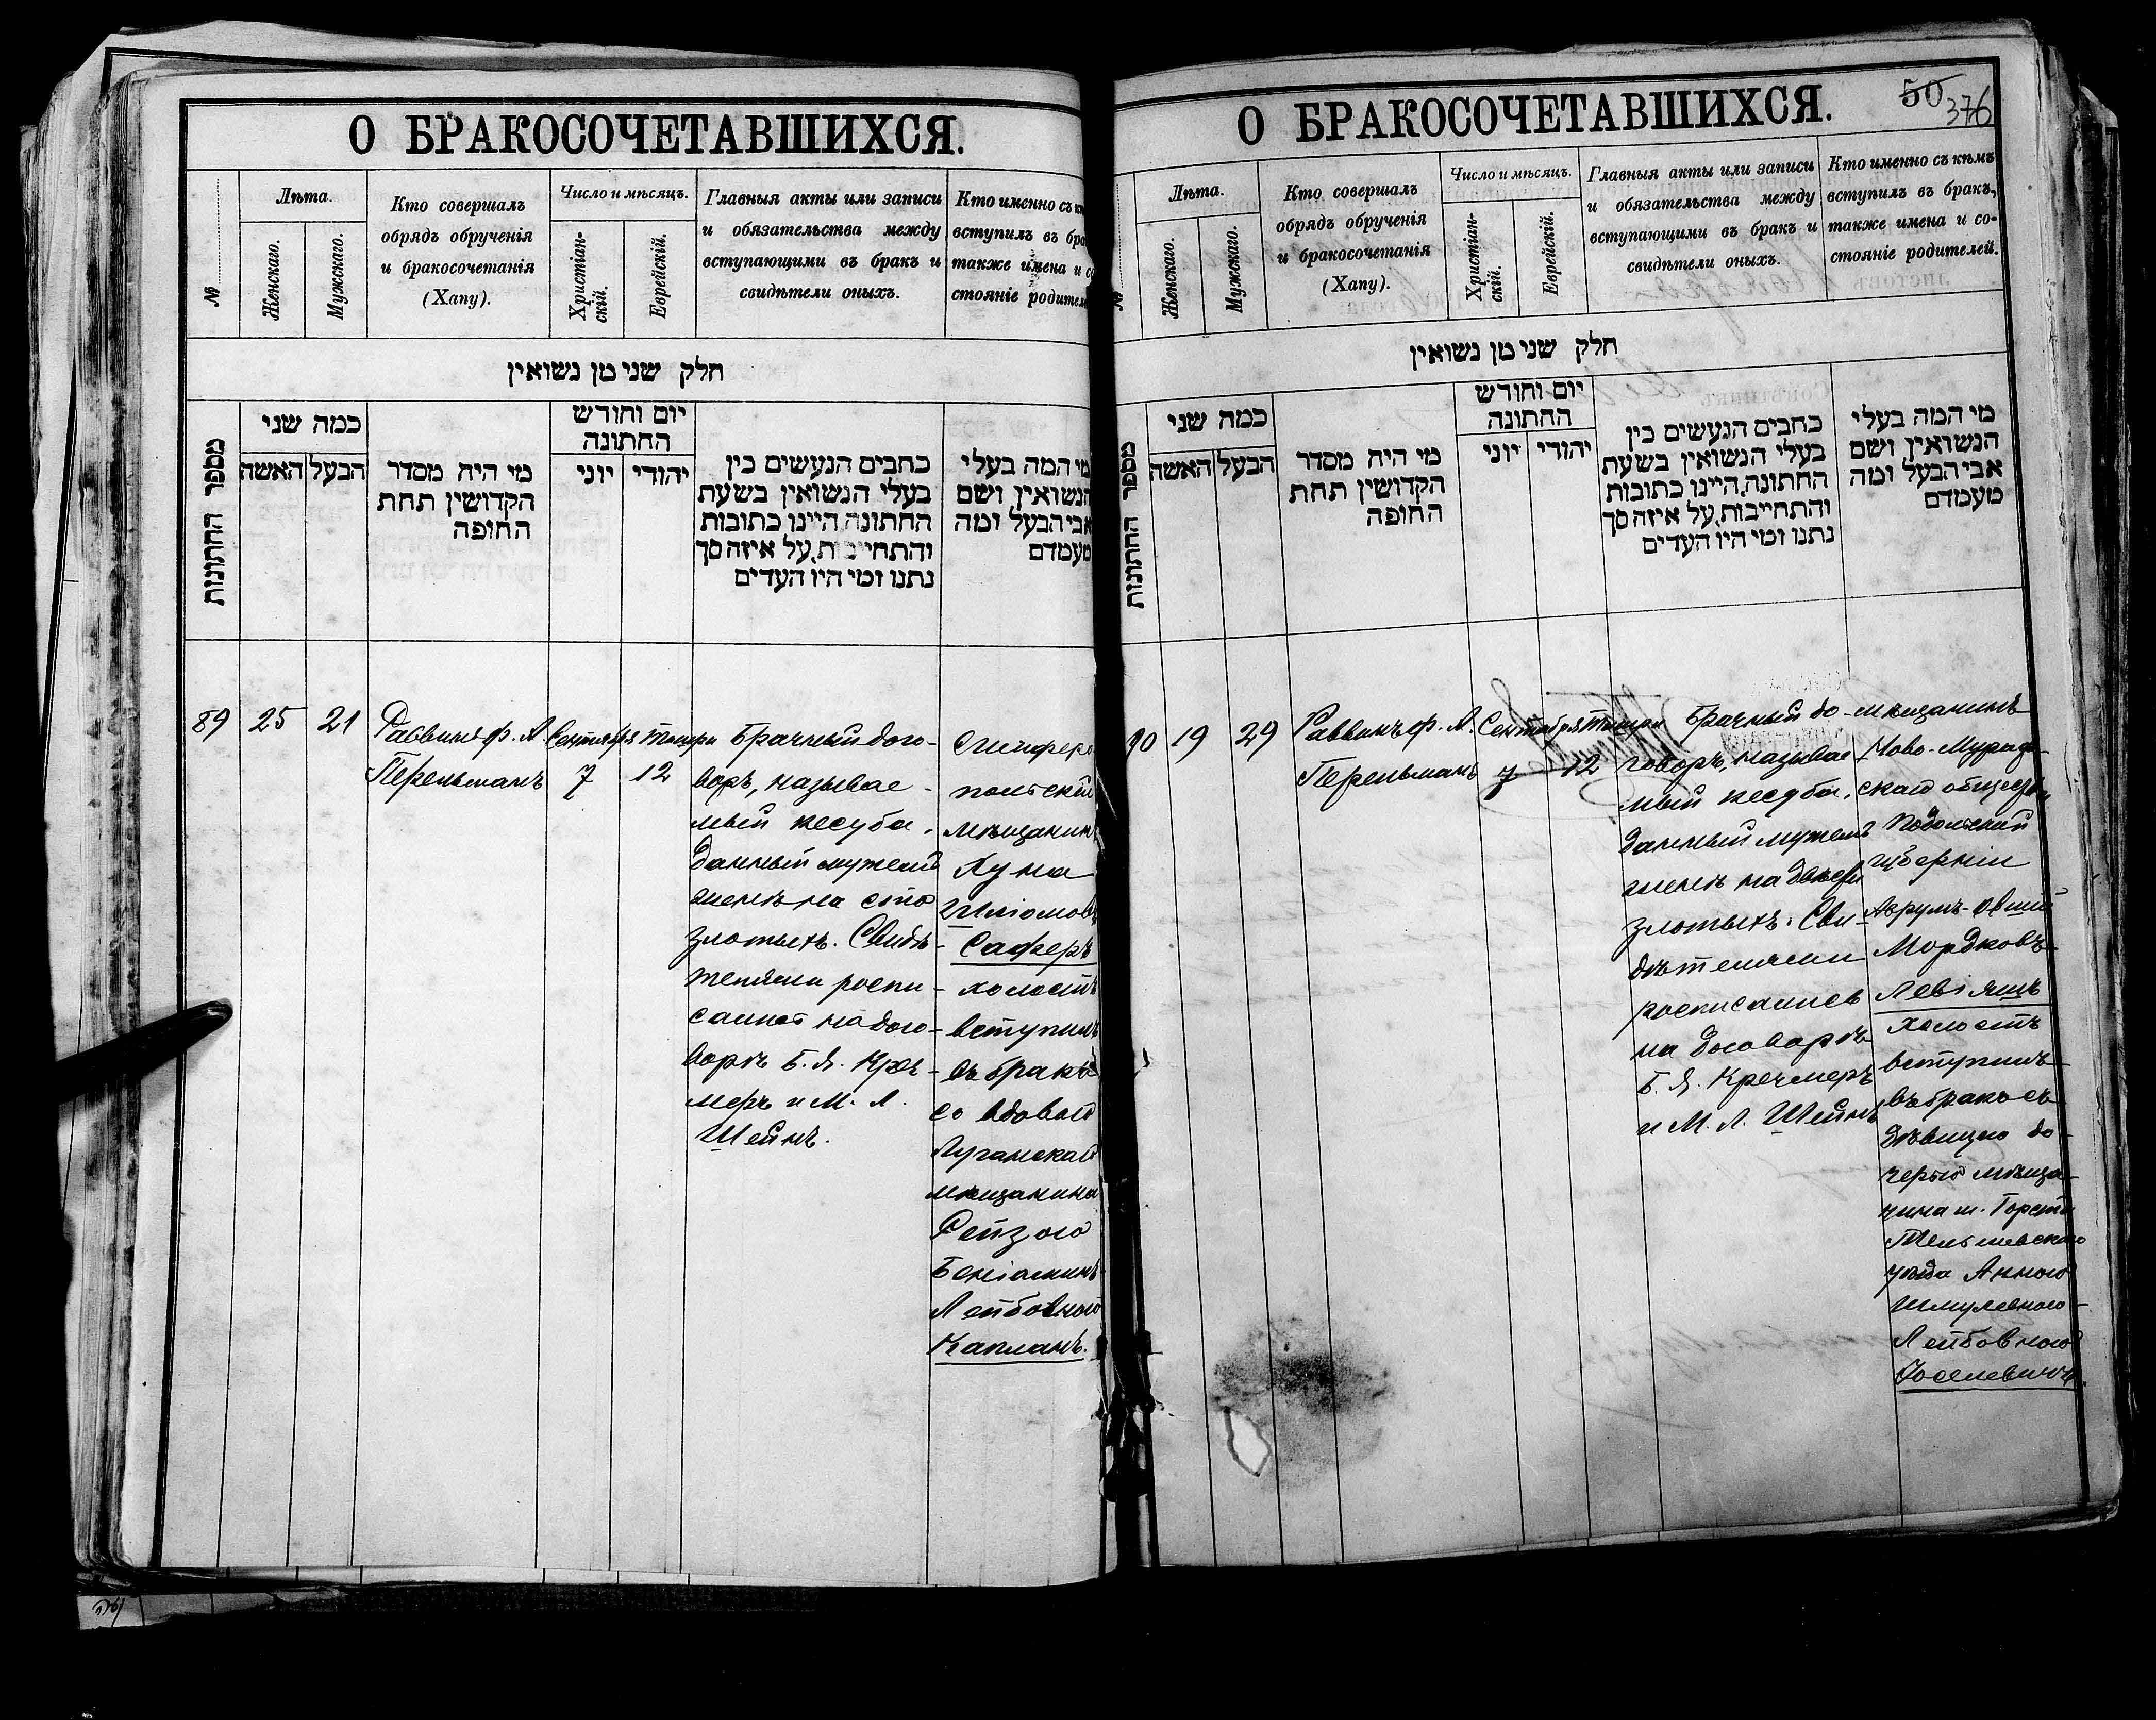 О БРАКОСОЧЕТАВШИХСЯ.
№
Лѣта.
Женскаго.
Мужскаго.
Кто совершалъ
обрядъ обрученія
и бракосочетанія
(Хапу).
Число и мѣсяцъ.
Христіан-
скій.
Еврейскій.
Главныя акты или записи
и обязательства между
вступающими въ бракъ и
свидѣтели оныхъ.
Кто именно съ
вступилъ въ
также имена и
стояніе
חלק שני מן נשואין
מספר החתונות
כמה שני
האשה
הבעל
מי היה מסדר
הקדושין תחת
החופה
יום וחודש
החתונה
יוני
יהודי
כתבים הנעשים בין
בעלי הנשואין בשעת
החתונה היינו כתובות
והתחייבות, על איזה סך
נתנו ומי היו העדים
מי המה בעלי
הנשואין ושם
אבי הבעל ומה
מעמדם
89
25
21
Раввинъ Ф. А.
Перельманъ
Сентября
7
Тишри
12
Брачный дого-
воръ, называе-
мый кесуба,
данный мужемъ
женѣ на сто
злотыхъ. Свидѣ-
телями роспи-
сались на дого-
ворѣ Б. Я. Креч-
меръ и М. Л.
Шейнъ.
Симферо-
польскій
мѣщанинъ
Хуна
Шліомовъ
Саферъ
холостъ
вступилъ
въ бракъ
со вдовой
Луганскаго
мѣщанина
Рейзою
Беніаминъ-
Лейбовною
Капланъ.
О БРАКОСОЧЕТАВШИХСЯ.
50
376
№
Лѣта.
Женскаго.
Мужскаго.
Кто совершалъ
обрядъ обрученія
и бракосочетанія
(Хапу).
Число и мѣсяцъ.
Христіан-
скій.
Еврейскій.
Главныя акты или записи
и обязательства между
вступающими въ бракъ и
свидѣтели оныхъ.
Кто именно съ кѣмъ
вступилъ въ бракъ,
также имена и со-
стояніе родителей.
חלק שני מן נשואין
מספר החתונות
כמה שני
האשה
הבעל
מי היה מסדר
הקדושין תחת
החופה
יום וחודש
החתונה
יוני
יהודי
כתבים הנעשים בין
בעלי הנשואין בשעת
החתונה, היינו כתובות
והתחייבות, על איזה סך
נתנו ומי היו העדים
מי המה בעלי
הנשואין ושם
אבי הבעל ומה
מעמדם
90
19
29
Раввинъ Ф. А.
Перельманъ
Сентября
7
Тишри
12
Брачный до-
говоръ, называе
мый кесуба,
данный мужемъ
женѣ на двѣсти
злотыхъ. Сви-
дѣтелями
росписались
на договорѣ
Б. Я. Кречмеръ
и М. Л. Шейнъ
мѣщанинъ
Ново-Мураф-
скаго общества
Подольской
губерніи
Аврумъ-Овшій
Мордковъ
Левіашъ
холостъ
вступилъ
въ бракъ съ
дѣвицею до-
черью мѣща-
нина м.
Тельшевскаго
уѣзда Анною
Шмулевною-
Лейбовною
Іоселевичъ.